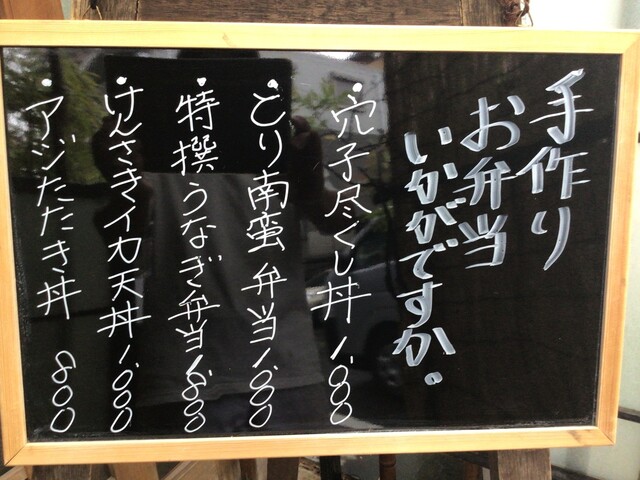 手作り
お弁当
いかがですか。
・穴子尽くし丼 1,000
・とり南蛮弁当 1,000
・特撰うなぎ弁当 1,800
・けんさきイカ天丼 1,000
・アジたたき丼 800